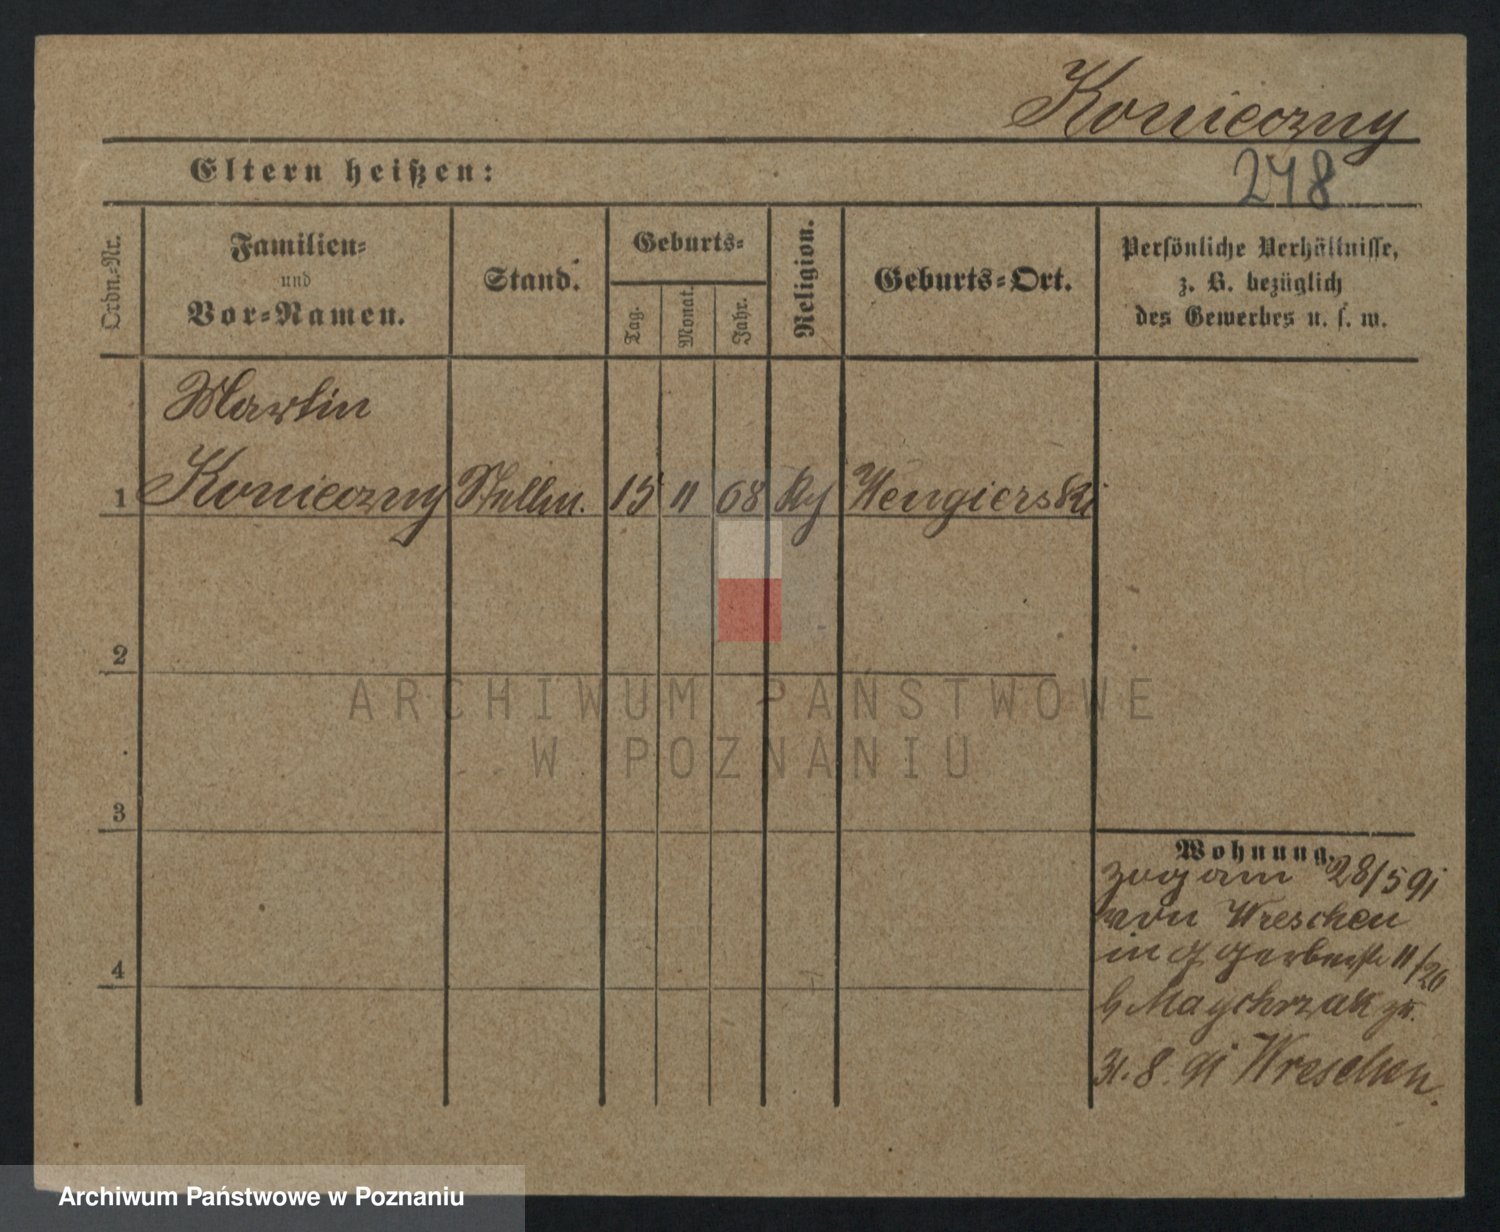 Konieczny
Eltern heißen:
248
Ordn.=Nr.
Familien=
und
Vor=Namen.
Stand.
Geburts=
Tag.
Monat.
Jahr.
Religion.
Geburts=Ort.
Persönliche Verhältnisse,
z. B. bezüglich
des Gewerbes u. s. w.
Martin
1 Konieczny Stellm. 15 11 68 Wengierski
2
3
4
Wohnung.
zog am 28/5 91
von Wreschen
in Gerberstr 11/20
b Maychrzak zu.
31. 8. 91 Wreschen.
ARCHIWUM PAŃSTWOWE
W POZNANIU
Archiwum Państwowe w Poznaniu